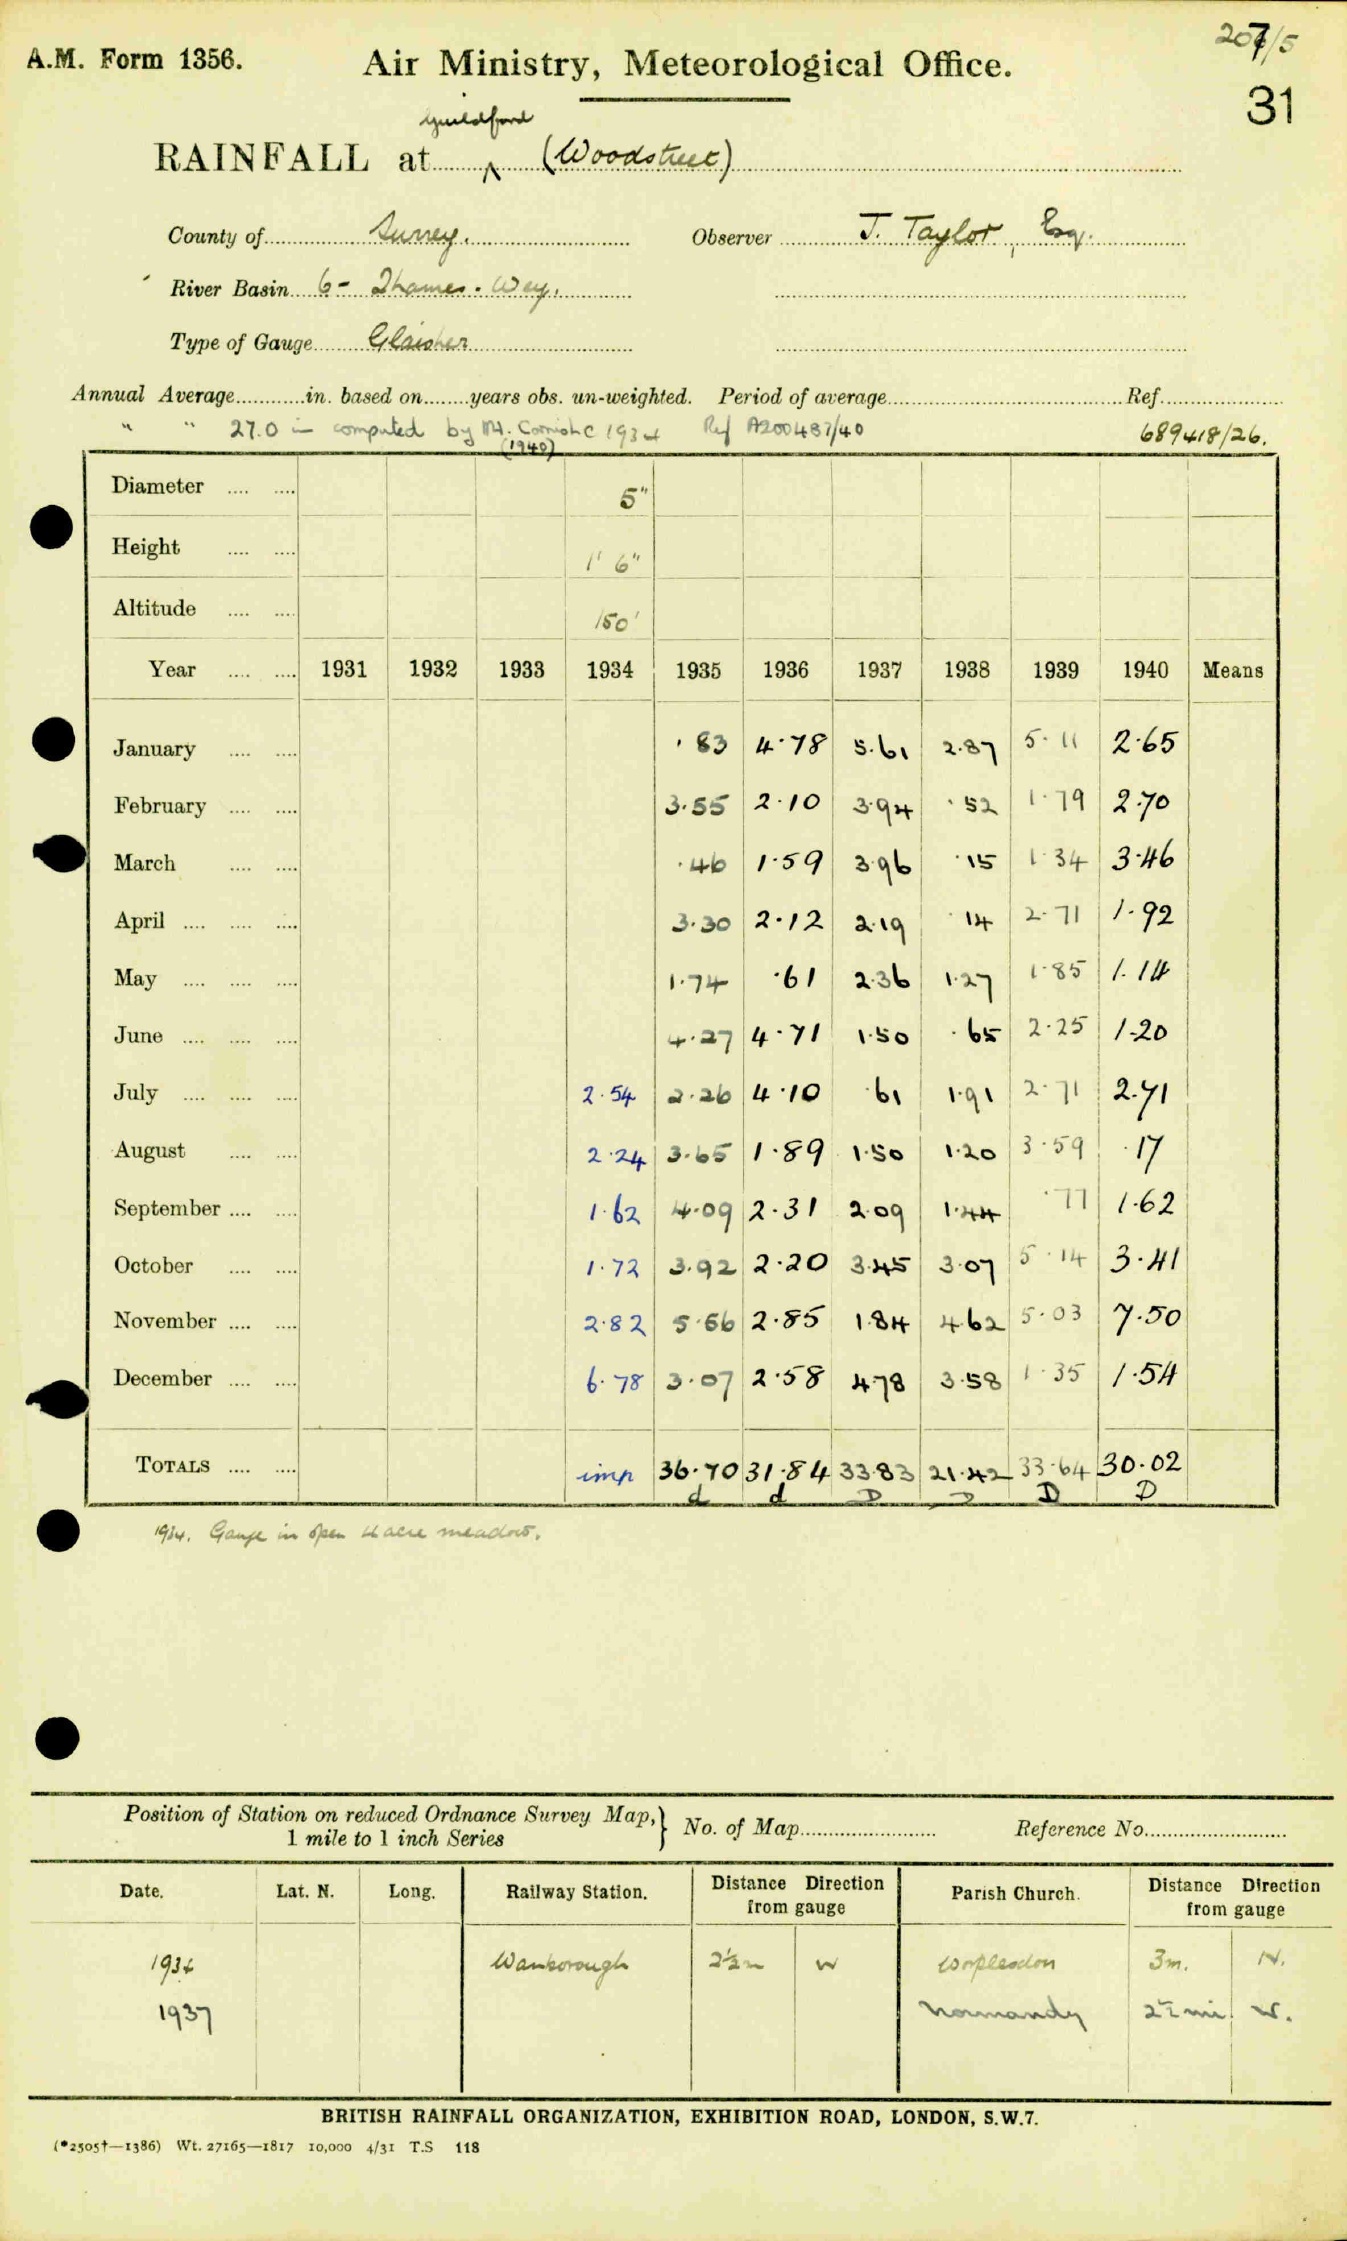 207/5
A.M. Form 1356. Air Ministry, Meteorological Office.
31
Guildford
RAINFALL at (Woodstreet)
County of Surrey. Observer J. Taylor, Esq.
River Basin 6 - Thames. Wey.
Type of Gauge Glaisher
Annual Average in. based on years obs. un-weighted. Period of average Ref.
" " 27.0 in computed by Mt. Cornish C 1934 Ref A200487/40 689418/26.
(1940)
Diameter 5"
Height 1' 6"
Altitude 150'
Year 1931 1932 1933 1934 1935 1936 1937 1938 1939 1940 Means
January .83 4.78 5.61 2.87 5.11 2.65
February 3.55 2.10 3.94 .52 1.79 2.70
March .46 1.59 3.96 .15 1.34 3.46
April 3.30 2.12 2.19 .14 2.71 1.92
May 1.74 .61 2.36 1.27 1.85 1.14
June 4.27 4.71 1.50 .65 2.25 1.20
July 2.54 2.26 4.10 .61 1.91 2.71 2.71
August 2.24 3.65 1.89 1.50 1.20 3.59 .17
September 1.62 4.09 2.31 2.09 1.44 .77 1.62
October 1.72 3.92 2.20 3.45 3.07 5.14 3.41
November 2.82 5.56 2.85 1.84 4.62 5.03 7.50
December 6.78 3.07 2.58 4.78 3.58 1.35 1.54
TOTALS imp 36.70 31.84 33.83 21.42 33.64 30.02
d d D D D D
1934. Gauge in open 4 acre meadow.
Position of Station on reduced Ordnance Survey Map, } No. of Map Reference No.
1 mile to 1 inch Series
Date. Lat. N. Long. Railway Station. Distance Direction Parish Church. Distance Direction
from gauge from gauge
1934 Wanborough 2½m W Worplesdon 3m. N.
1937 Normandy 2½ mi. W.
BRITISH RAINFALL ORGANIZATION, EXHIBITION ROAD, LONDON, S.W.7.
(*2505†—1386) Wt. 27165—1817 10,000 4/31 T.S 118